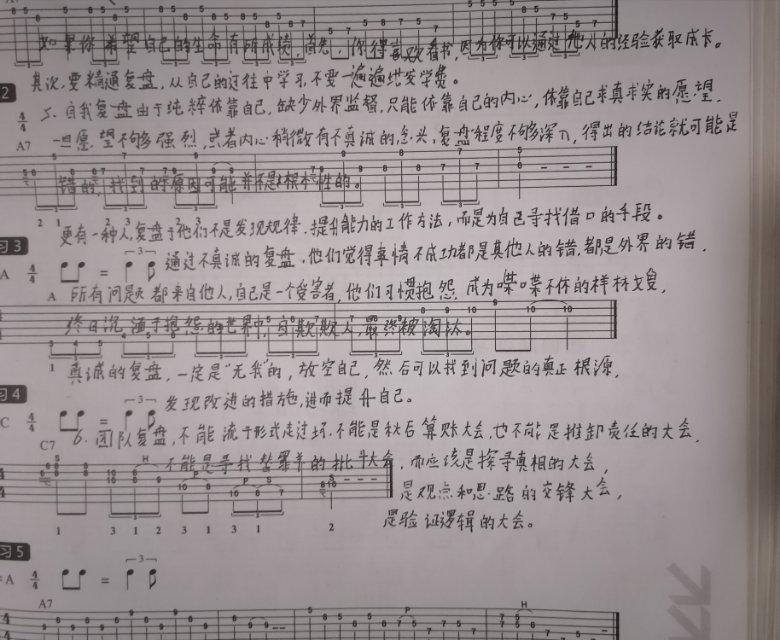 如果你希望自己的生命有所成绩，首先，你得喜欢看书，因为你可以通过他人的经验获取成长。
其次，要精通复盘，从自己的过往中学习，不要一遍遍地发学费。
2
5、自我复盘由于纯粹依靠自己，缺少外界监督，只能依靠自己的内心，依靠自己求真求实的愿望，
一旦愿望不够强烈，或者内心稍微有不真诚的念头，复盘程度不够深入，得出的结论就可能是
A7
错的，找到的原因可能并不是根本性的。
更有一种人，复盘于他们不是发现规律、提升能力的工作方法，而是为自己寻找借口的手段。
习3
通过不真诚的复盘，他们觉得事情不成功都是其他人的错，都是外界的错，
A 4/4 = 3
A 所有问题都来自他人，自己是一个受害者，他们习惯抱怨，成为喋喋不休的祥林嫂，
终日沉湎于抱怨的世界中，自欺欺人，最终被淘汰。
真诚的复盘，一定是“无我”的，放空自己，然后可以找到问题的真正根源，
习4
发现改进的措施，进而提升自己。
C 4/4 = 3
C7 6、团队复盘，不能流于形式走过场，不能是秋后算账大会，也不能是推卸责任的大会，
不能是寻找替罪羊的批斗大会，而应该是探寻真相的大会，
是观点和思路的交锋大会，
是验证逻辑的大会。
1 3 1 2 3 1 3 1 2
习5
A 4/4 = 3
A7